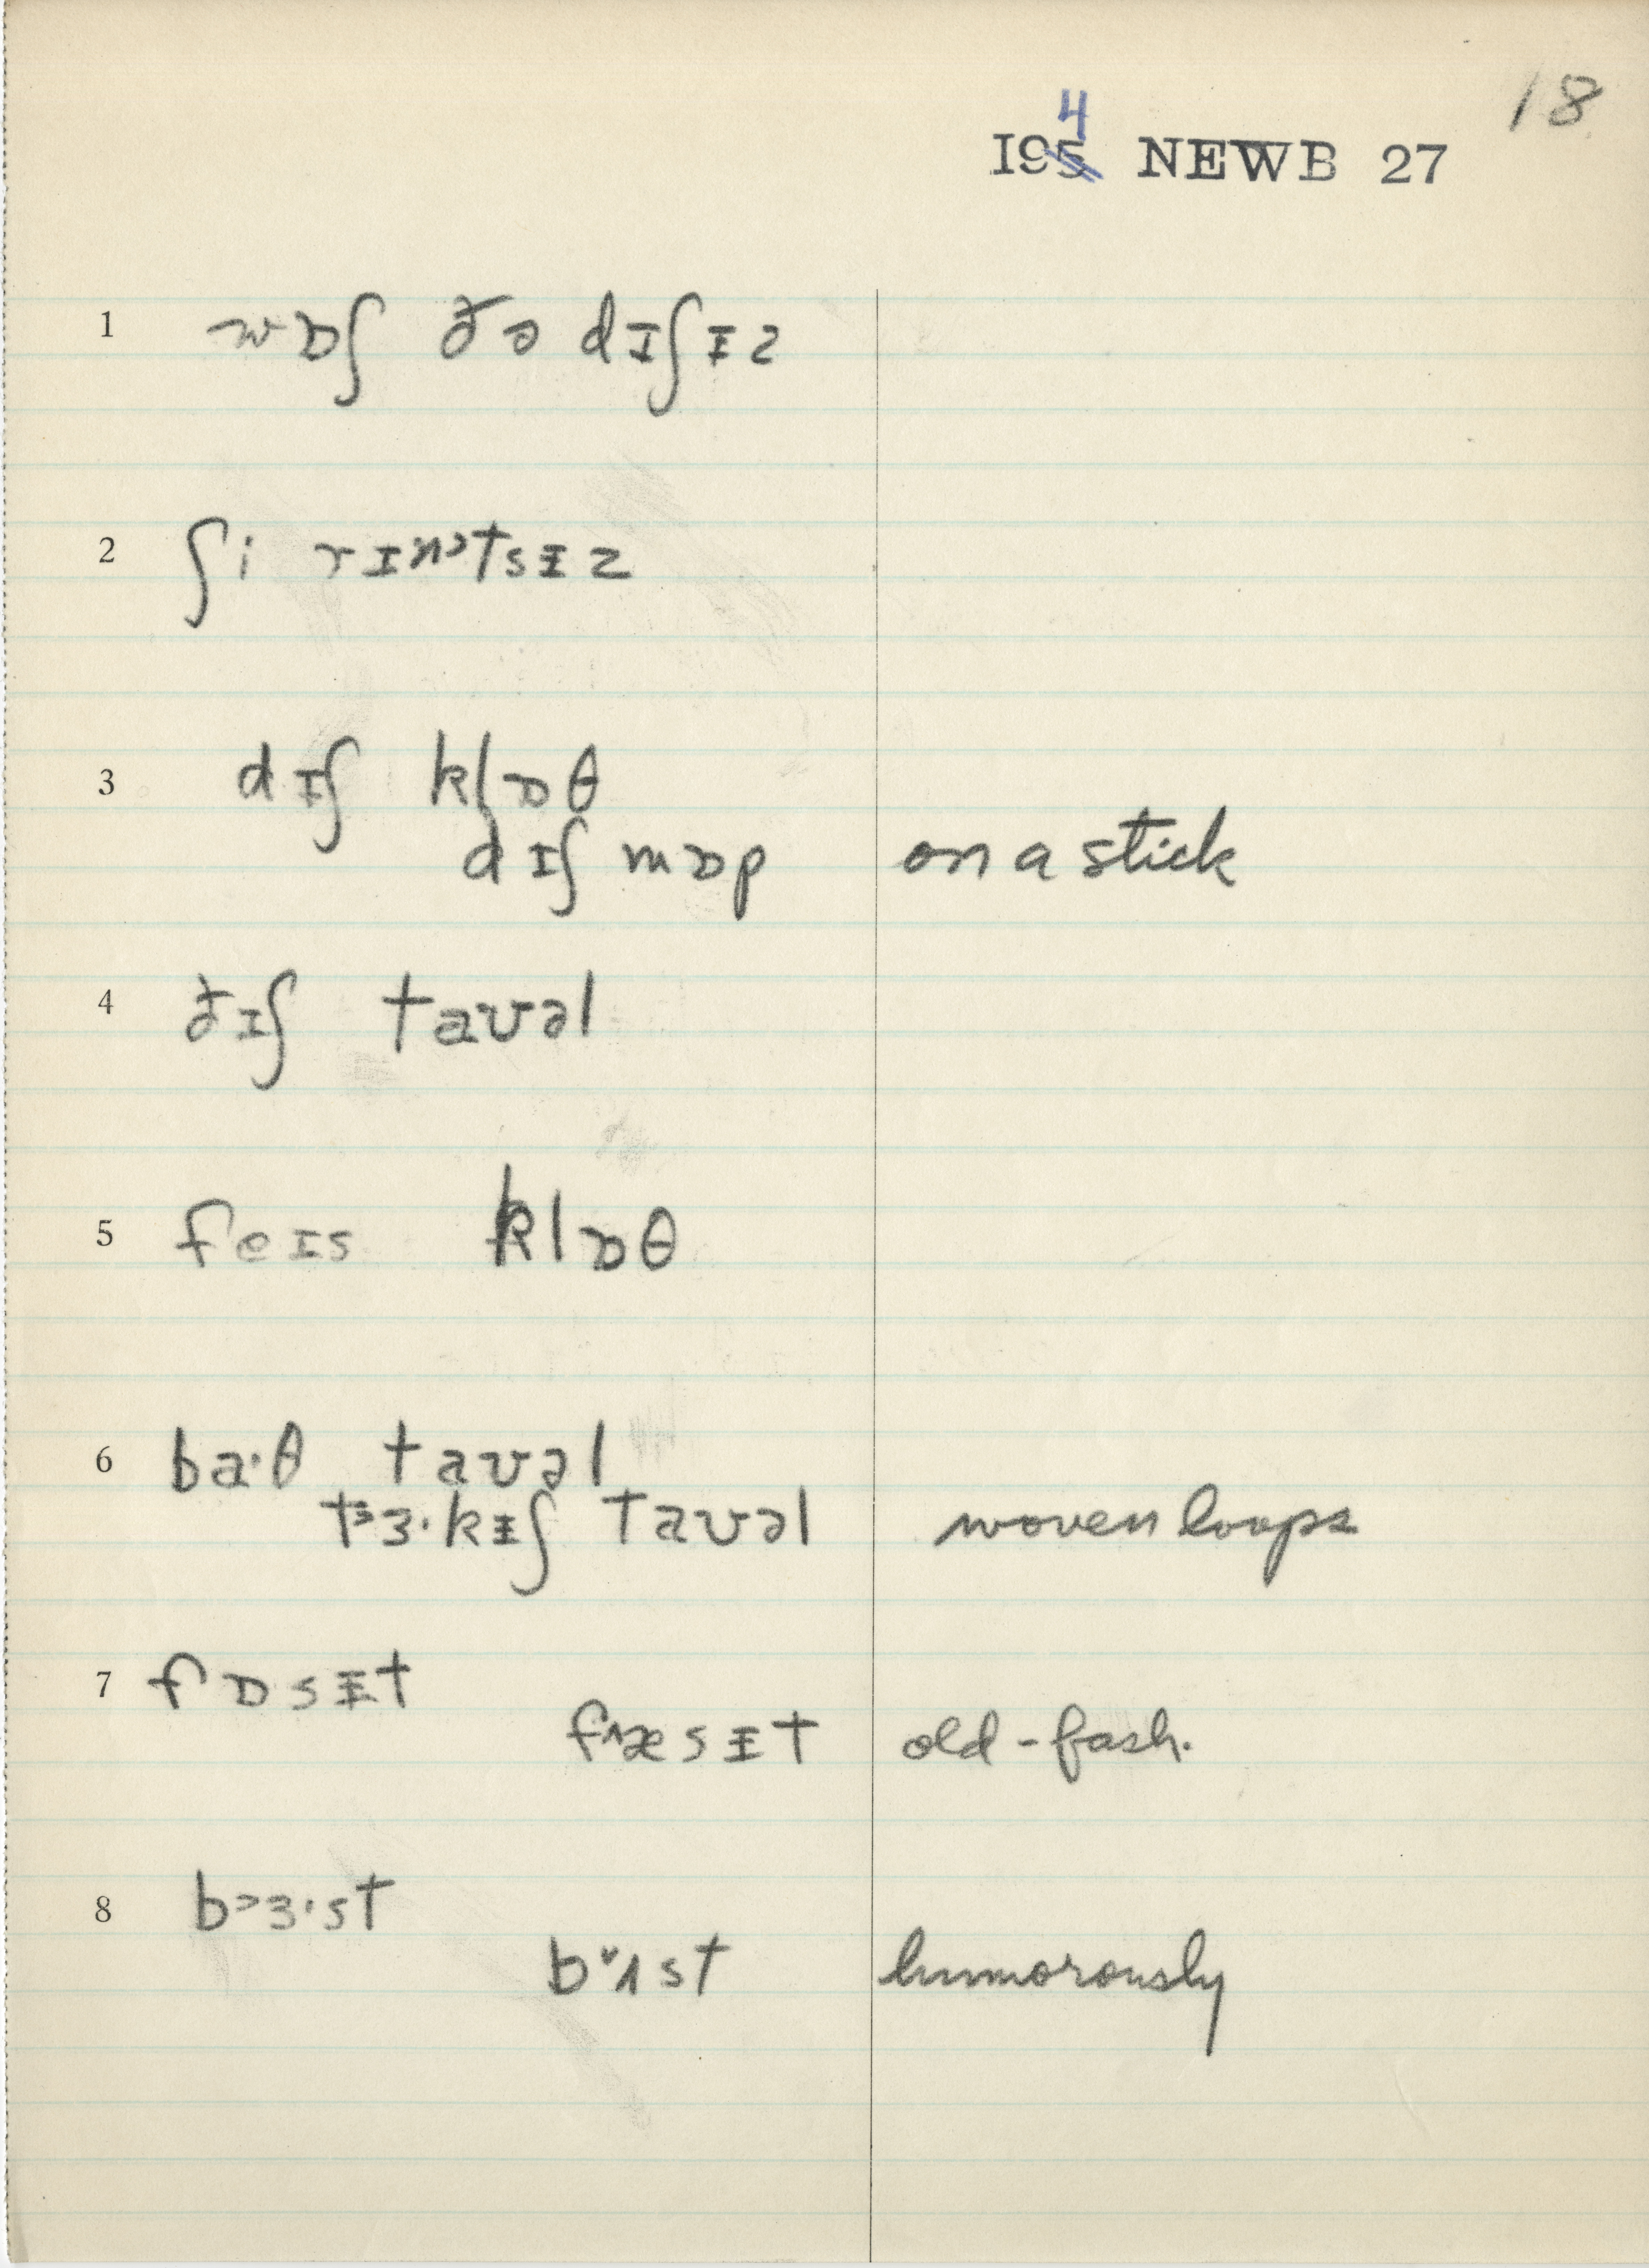 18
4
I95 NEWB 27
1 wɒʃ ðə dɪʃɪz
2 ʃi rɪnᵊtsᵻz
3 dɪʃ klɒθ
dɪʃ mɒp on a stick
4 ðɪʃ taʊəl
5 feɪs klɒθ
6 ba·θ taʊəl
tᵊɜ·kᵻʃ taʊəl woven loops
7 fɒsᵻt
fᴧæsᵻt old-fash.
8 b>ɜ·st
bᵛʌst humorously